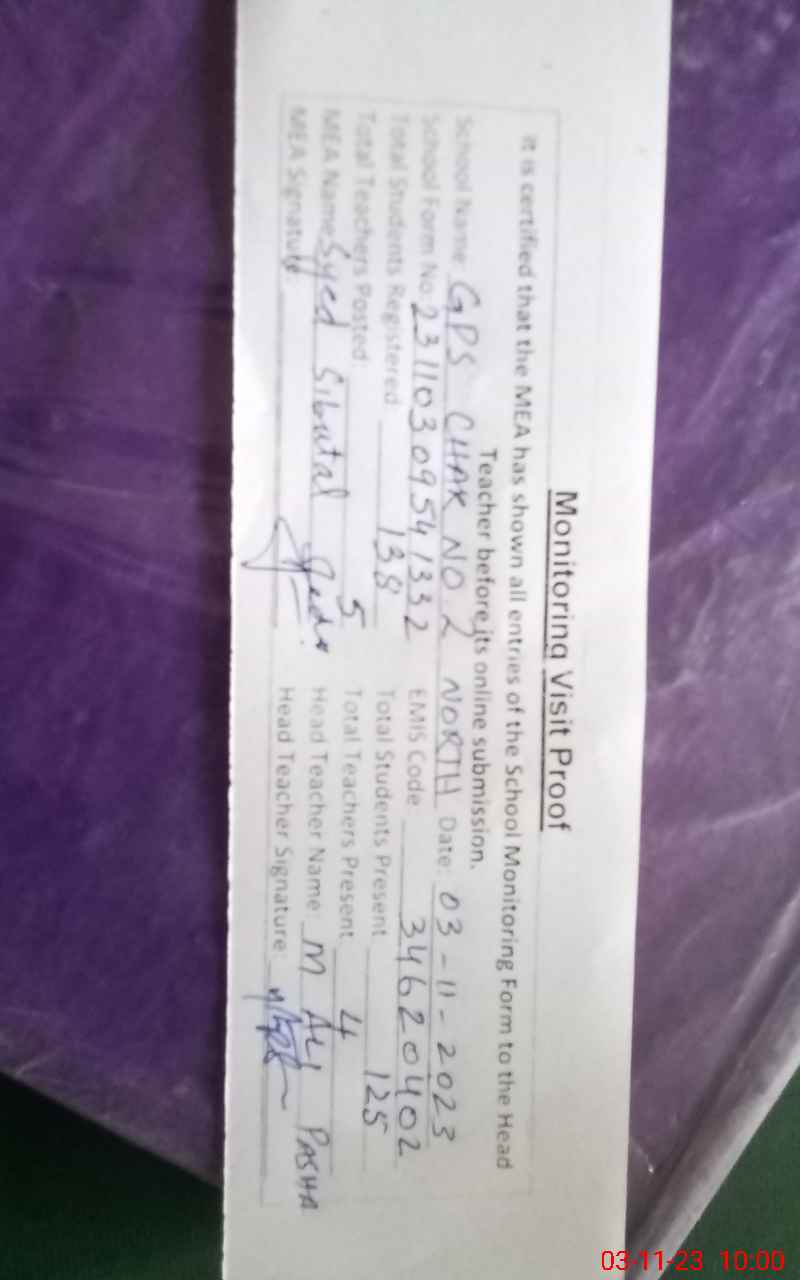 Monitoring Visit Proof
It is certified that the MEA has shown all entries of the School Monitoring Form to the Head
Teacher before its online submission.
School Name: GPS CHAK NO. 2 NORTH Date: 03-11-2023
School Form No: 23110309541332 EMIS Code 34620402
Total Students Registered 138 Total Students Present 125
Total Teachers Posted: 5 Total Teachers Present 4
MEA Name: Syed Head Teacher Name: M ALI PASHA
MEA Signature: Head Teacher Signature:
03-11-23 10:00